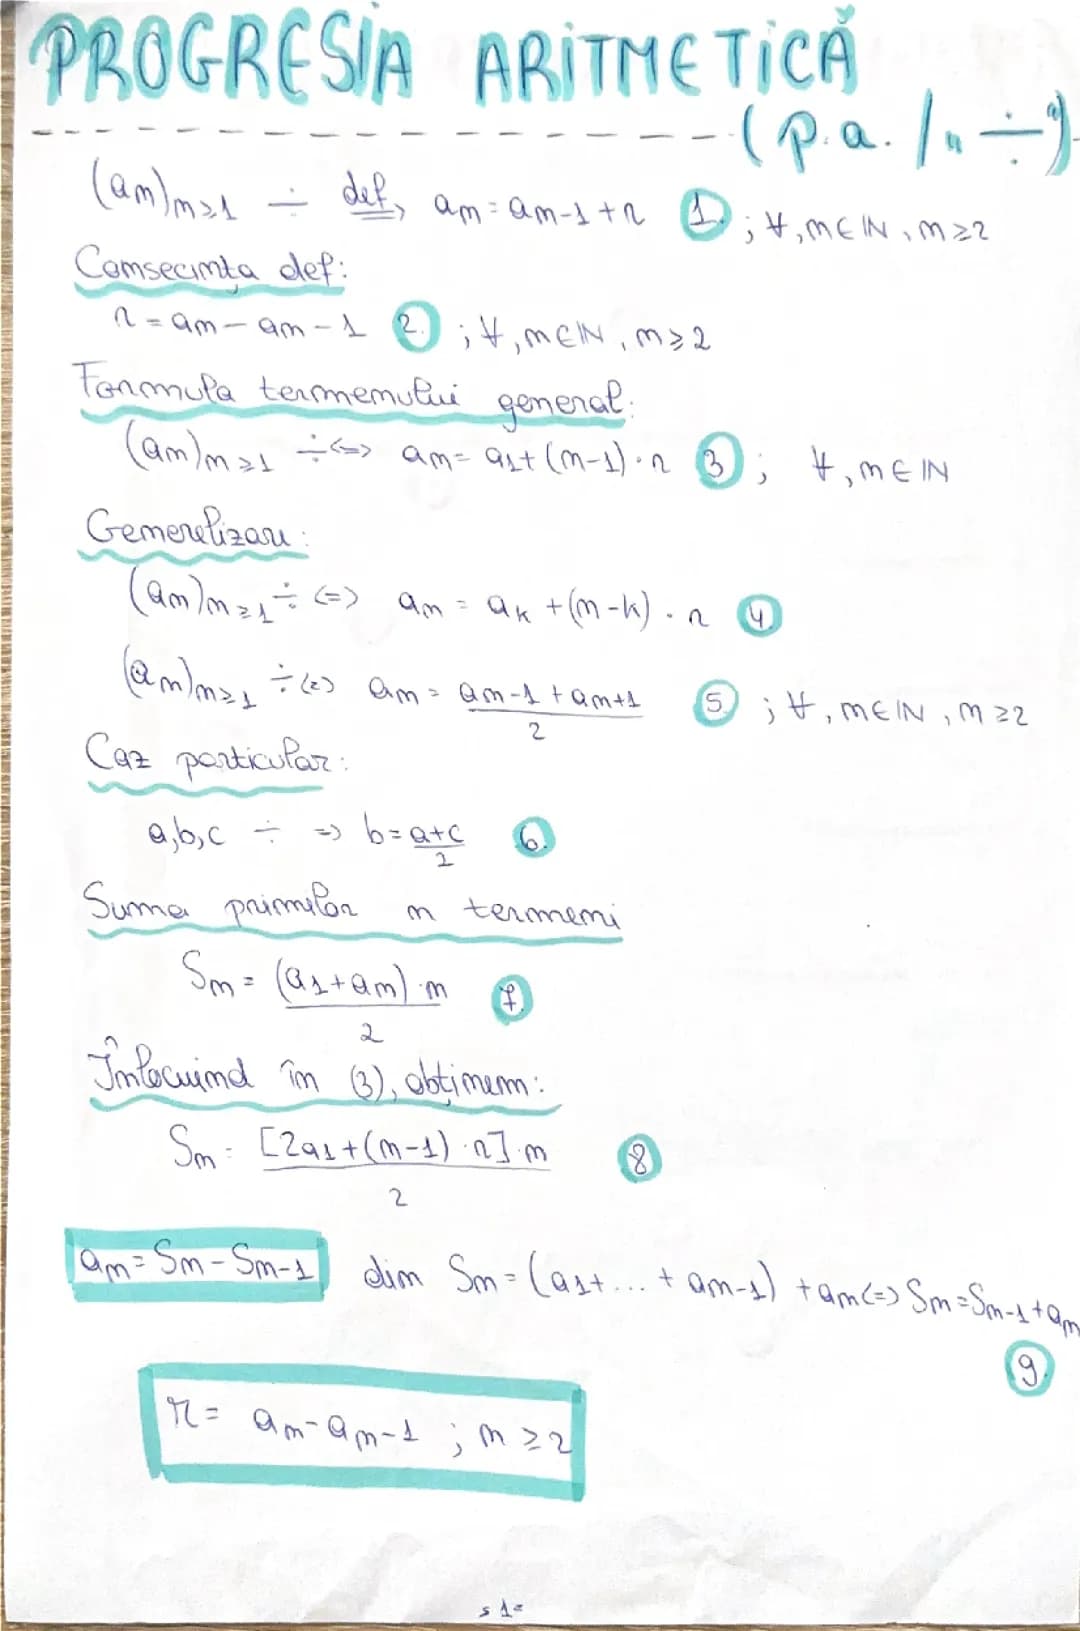 PROGRESIA ARITMETICĂ
(p.a. / „ ÷ ”)
(an)n≥1 ÷ def, an = an-1 + r 1. ; ∀, n ∈ ℕ, n ≥ 2
Consecința def:
r = an - an-1 2. ; ∀, n ∈ ℕ, n ≥ 2
Formula termenului general:
(an)n≥1 ÷ <=> an = a1 + (n-1) · r 3 ; ∀, n ∈ ℕ
Generelizare:
(an)n≥1 ÷ <=> an = ak + (n-k) · r 4.
(an)n≥1 ÷ <=> an = (an-1 + an+1)/2 5. ; ∀, n ∈ ℕ, n ≥ 2
Caz particular:
a,b,c ÷ => b = (a+c)/2 6.
Suma primilor n termeni
Sn = (a1 + an) · n / 2 7.
Înlocuind în (3), obținem:
Sn = [2a1 + (n-1) · r] · n / 2 8
an = Sn - Sn-1 din Sn = (a1 + ... + an-1) + an <=> Sn = Sn-1 + an
9.
r = an - an-1 ; n ≥ 2